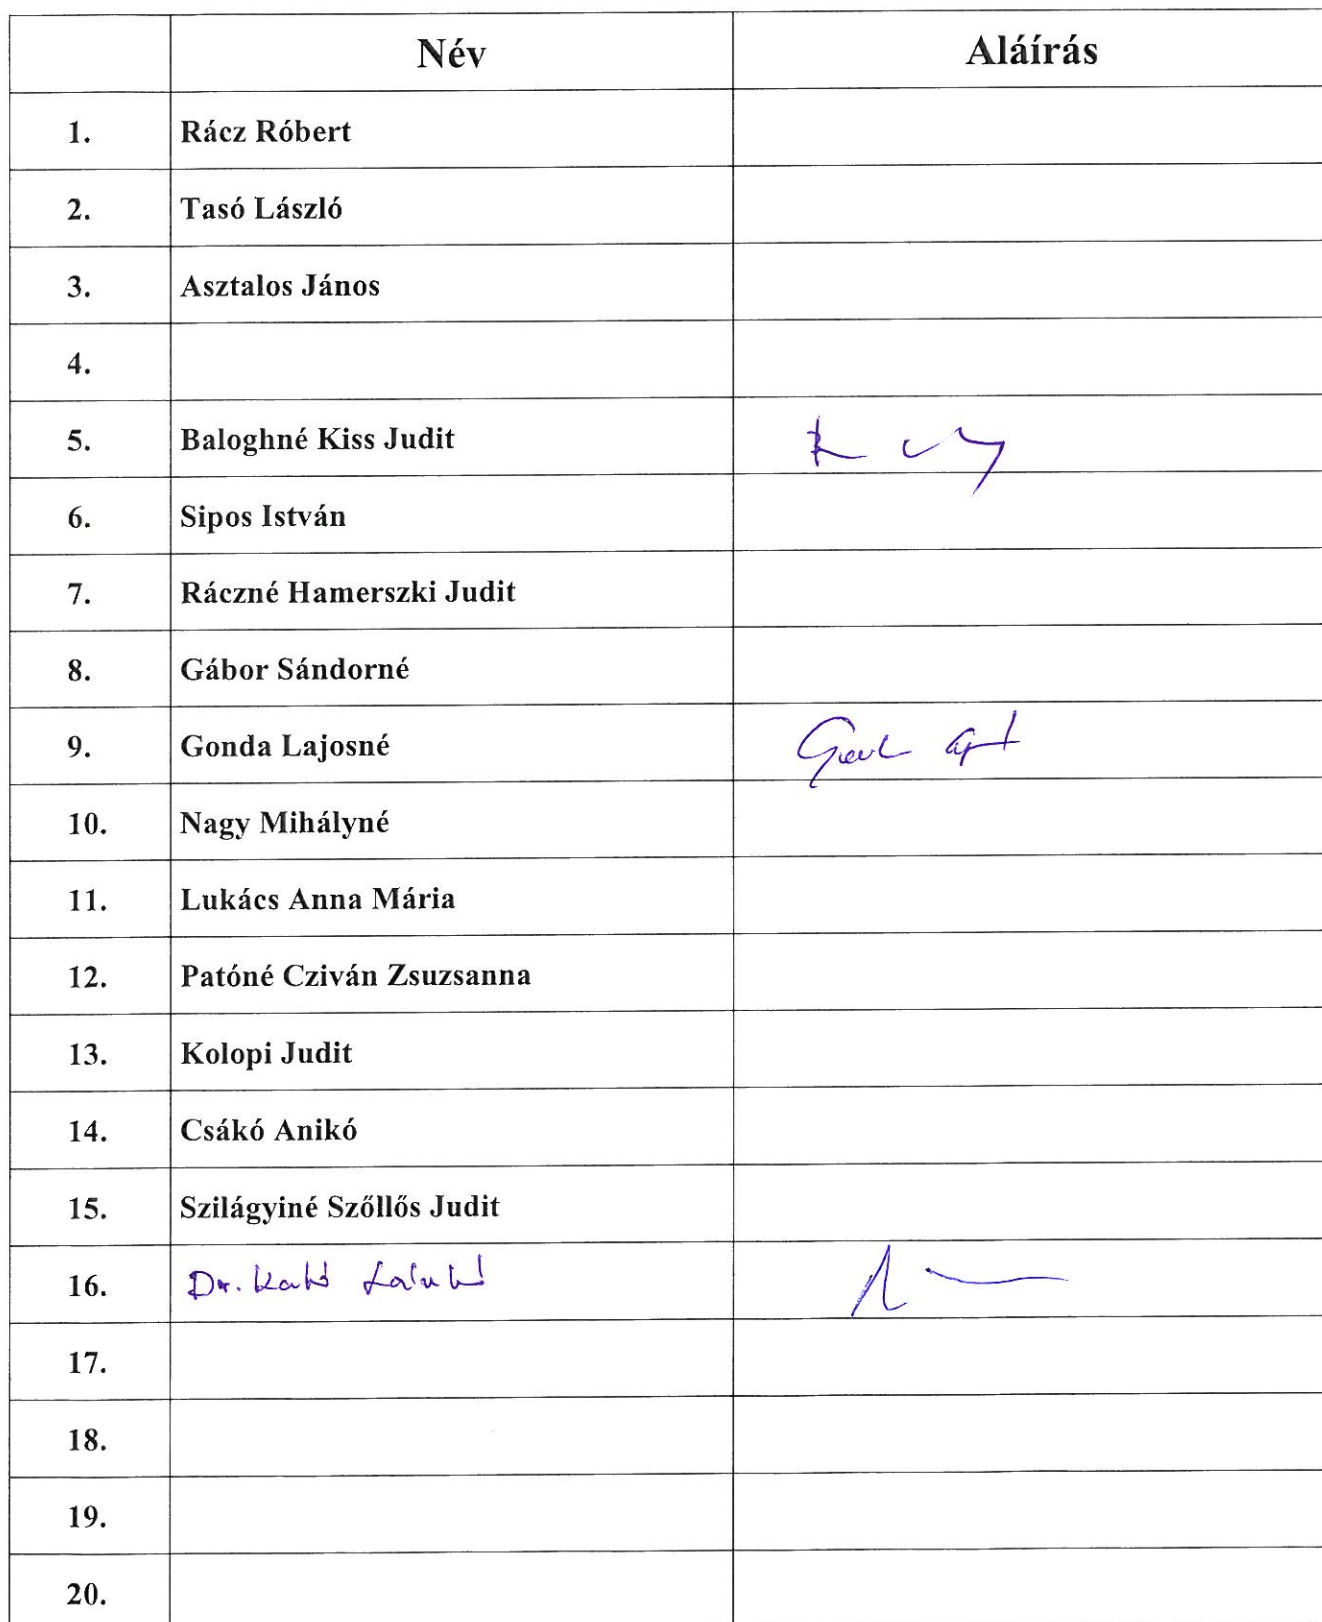 Név Aláírás
1. Rácz Róbert
2. Tasó László
3. Asztalos János
4.
5. Baloghné Kiss Judit
6. Sipos István
7. Ráczné Hamerszki Judit
8. Gábor Sándorné
9. Gonda Lajosné
10. Nagy Mihályné
11. Lukács Anna Mária
12. Patóné Cziván Zsuzsanna
13. Kolopi Judit
14. Csákó Anikó
15. Szilágyiné Szőllős Judit
16. Dr.
17.
18.
19.
20.